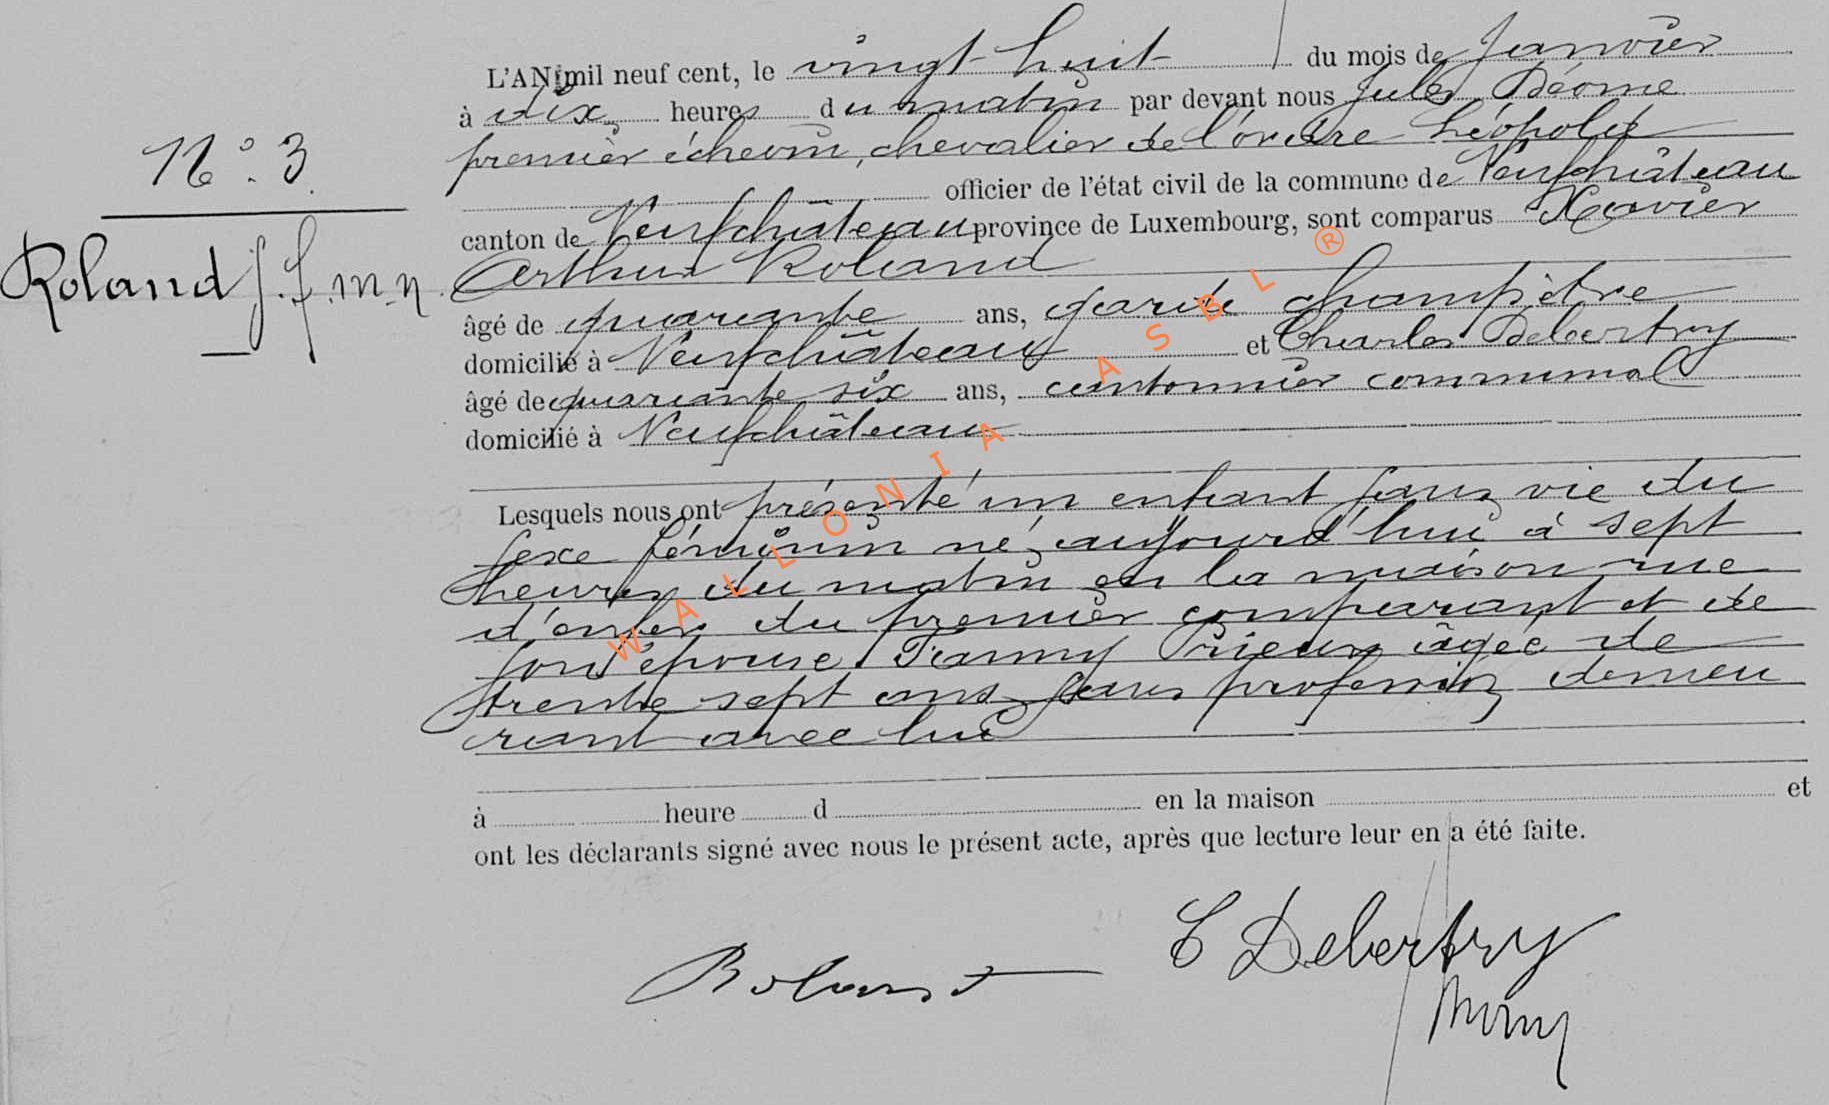 N° 3
Roland s.f.m.n.
L'AN mil neuf cent, le vingt huit du mois de Janvier
à dix heures du matin par devant nous Jules Déome
premier échevin, chevalier de l'ordre Léopold
officier de l'état civil de la commune de Neufchâteau
canton de Neufchâteau province de Luxembourg, sont comparus Xavier
Arthur Roland
âgé de quarante ans, garde champêtre
domicilié à Neufchâteau et Charles Debertry
âgé de quarante six ans, cantonnier communal
domicilié à Neufchâteau
Lesquels nous ont présenté un enfant sans vie du
sexe féminin né aujourd'hui à sept
heures du matin en la maison rue
du premier comparant et de
son épouse Fanny Prieur âgée de
trente sept ans sans profession demeu
rant avec lui
à heure d en la maison et
ont les déclarants signé avec nous le présent acte, après que lecture leur en a été faite.
Roland
C Debertry
WALLONIA ASBL ®